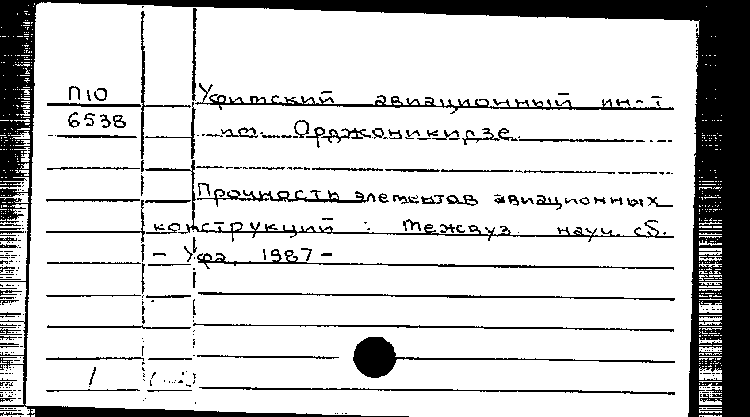 П10 Уфимский авиационный ин-т
6538 им. Орджоникидзе.
Прочность элементов авиационных
конструкций : Межвуз. науч. сб.
- Уфа, 1987 -
/